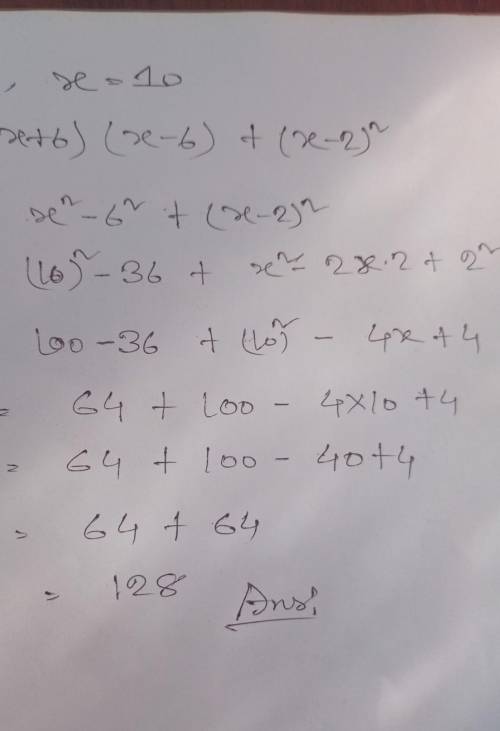 , x = 10
x+6) (x-6) + (x-2)²
x² - 6² + (x-2)²
(10)² - 36 + x² - 2x·2 + 2²
100 - 36 + (10)² - 4x + 4
= 64 + 100 - 4×10 + 4
= 64 + 100 - 40 + 4
= 64 + 64
= 128 Ans: